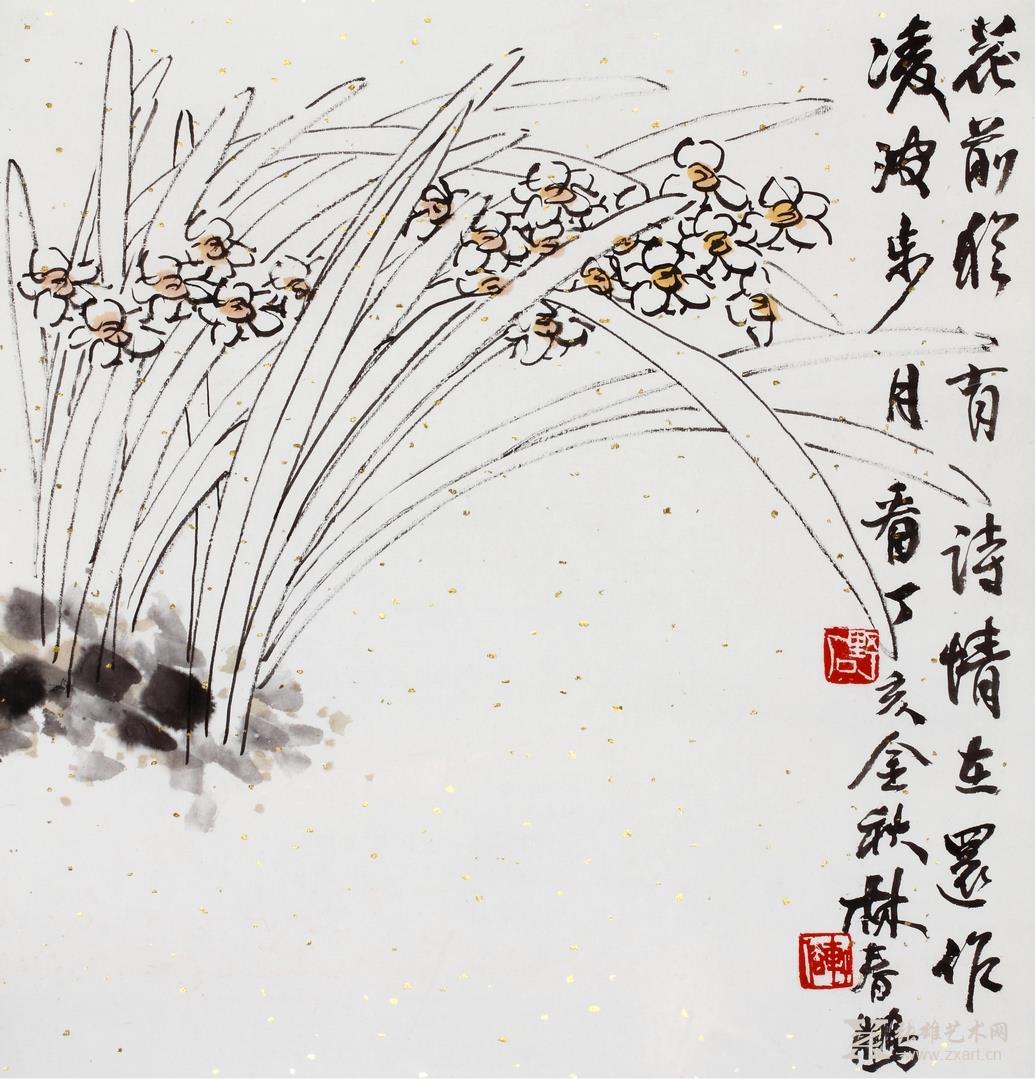 花前猶有詩情在還作
凌波步月看丁亥金秋林春鸿
雄艺术网
www.zxart.cn